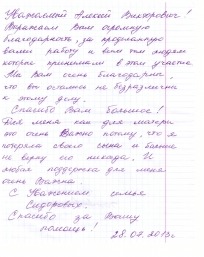 Уважаемый Алексей Викторович!
Выражаем Вам огромную
благодарность, за проделанную
Вами работу и всем тем людям
которые принимали в этом участие.
Мы Вам очень благодарны,
что вы остались не безразличны
к этому делу.
Спасибо Вам большое!
Для меня как для матери
это очень Важно потому, что я
потеряла своего сына и больше
не верну его никогда. И
любая поддержка для меня
очень Важна.
С Уважением семья
Сидоровых.
Спасибо за Вашу
помощь!
28.07.2013г.